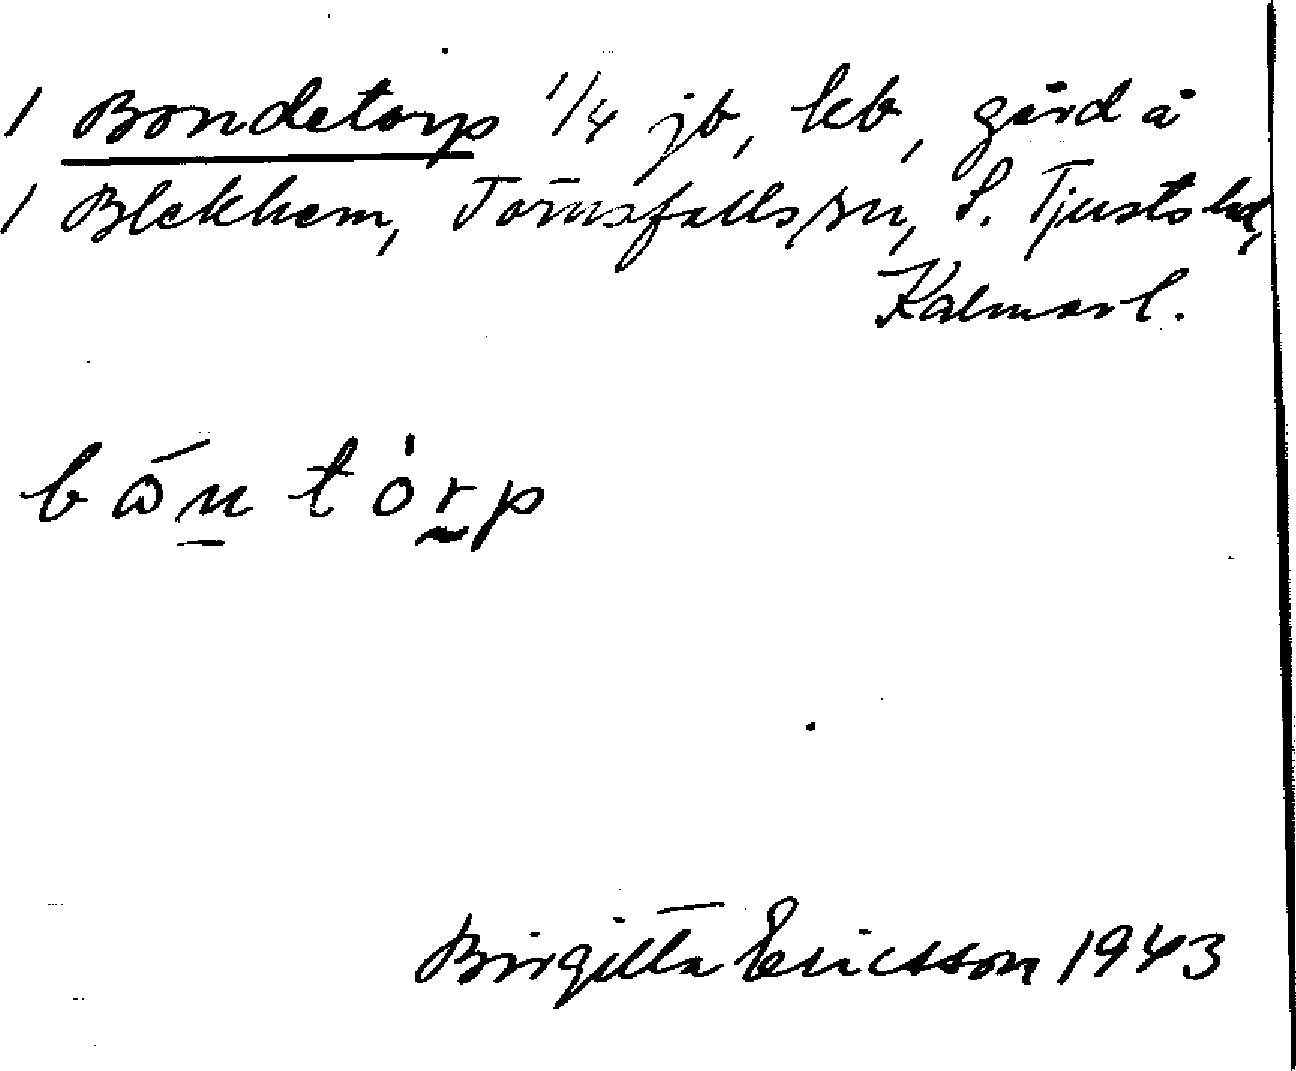 1 Bondetorp 1/4 jb, kb, gård å
1 Blekhem, Törnsfalls sn, S. Tjusts hd,
Kalmar l.
bån tórp
Birgitta Ericsson 1943